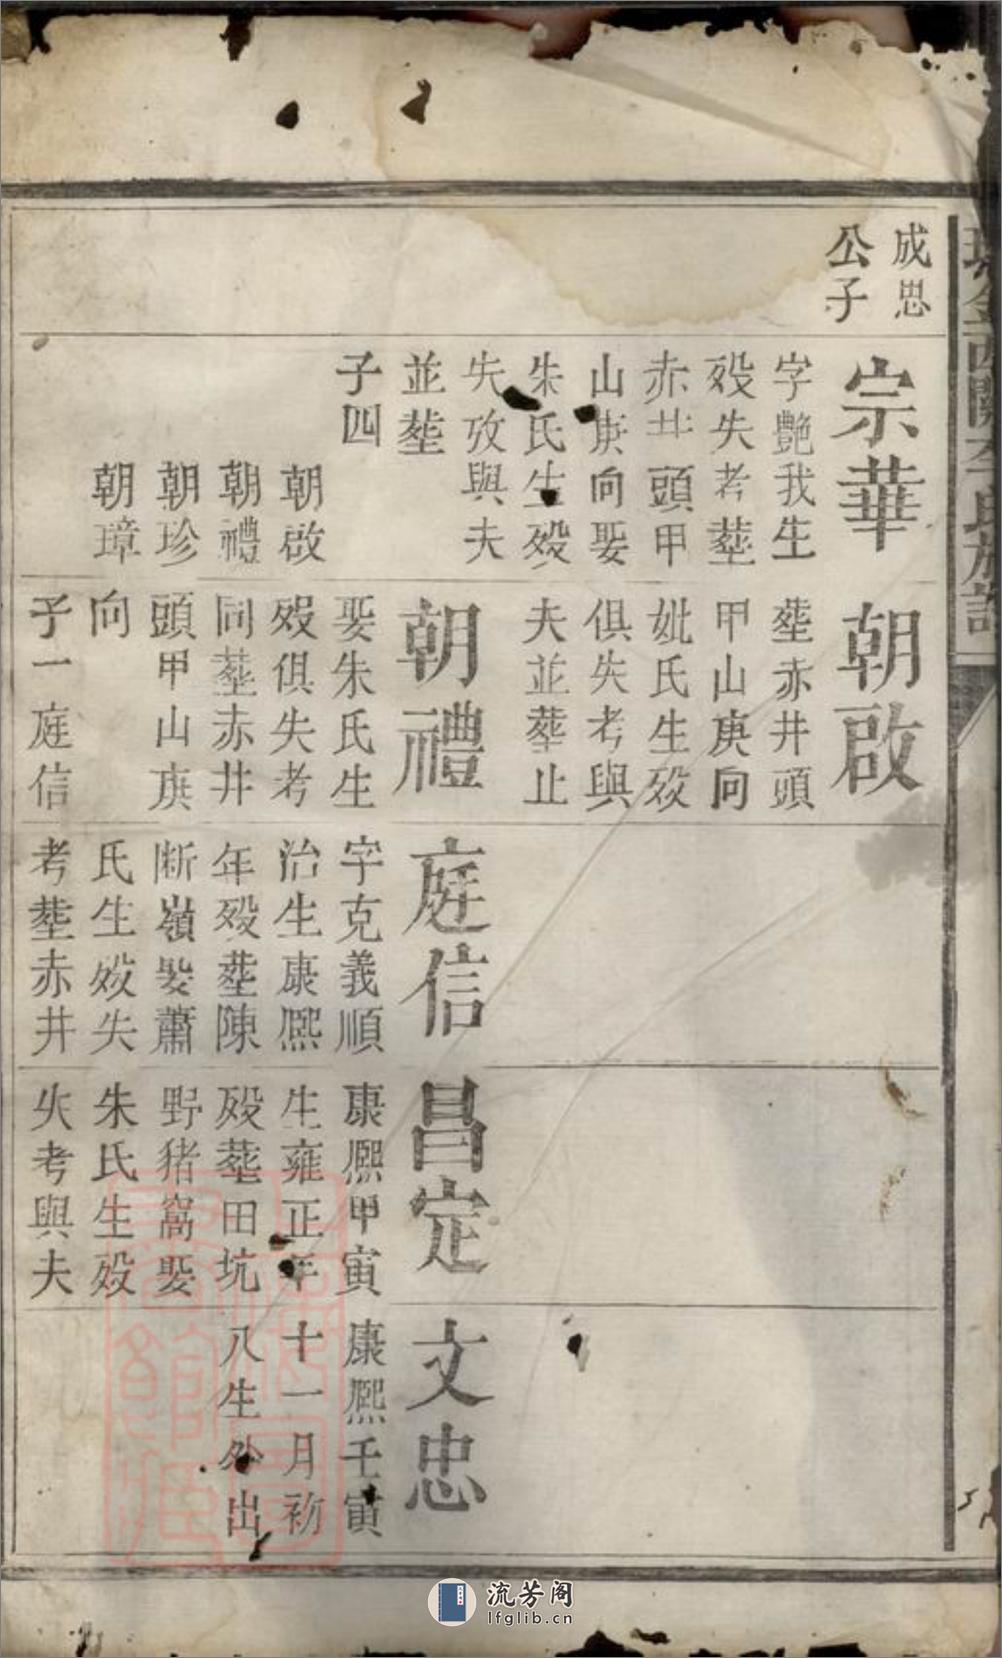 成思
公子
宗華
字艷我生
歿失考塟
赤井頭甲
山庚向娶
朱氏生歿
失攷與夫
並塟
子四
朝啟
朝禮
朝珍
朝璋
朝啟
塟赤井頭
甲山庚向
妣氏生歿
俱失考與
夫並塟止
朝禮
娶朱氏生
歿俱失考
同塟赤井
頭甲山庚
向
子一庭信
庭信
字克義順
治生康熙
年歿塟陳
断嶺娶蕭
氏生歿失
考塟赤井
昌定
康熙甲寅
生雍正年
歿塟田坑
野猪窩娶
朱氏生歿
失考與夫
文忠
康熙壬寅
十一月初
八生外出
李氏族譜
流芳阁
lfglib.cn